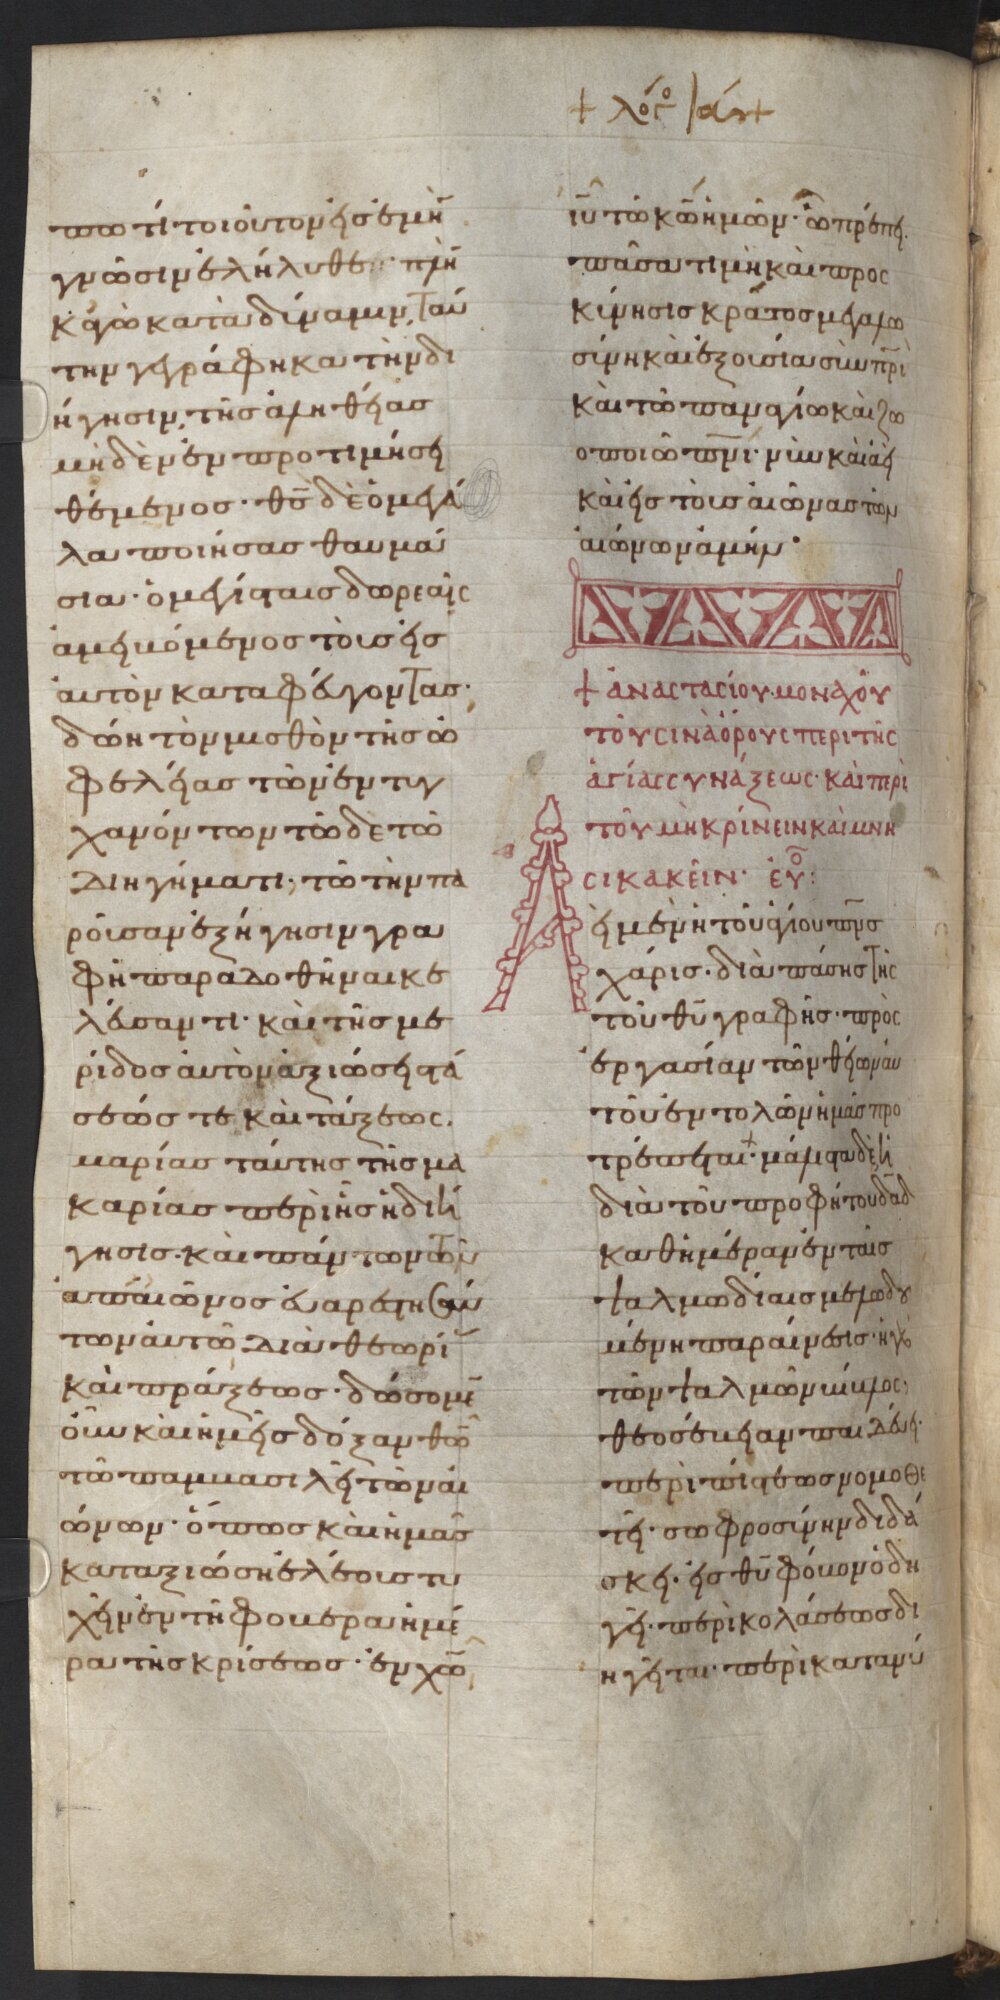 + λόγο ια΄ +
πω τί τοιοῦτον εἰς ἐμὴν
γνῶσιν ἐλήλυθε· πλὴν
κἀγὼ κατὰ δύναμιν, ταύ
την γεγράφηκα τὴν δι
ήγησιν, τῆς ἀληθείας
μηδὲν ἐμπροτιμήσει
θέμενος· θς δὲ ὁ μεγά
λα ποιήσας θαυμά
σια· ὁ μεγίσταις δωρεαῖς
ἀμειβόμενος τοῖς εἰς
αὐτὸν καταφεύγοντας·
δώη τὸν μισθὸν τῆς ὠ
φελείας τῶν ἐντυγ
χανόντων τῶδε τῶ
διηγήματι, τῶ τὴν πα
ροῦσαν ἐξήγησιν γρα
φῆ παραδοθῆναι κε
λεύσαντι· καὶ τῆς με
ρίδος αὐτὸν ἀξιώσει στά
σεώς τε καὶ τάξεως,
μαρίας ταύτης τῆς μα
καρίας περὶ ἧς ἡ διή
γησις· καὶ πάντων τῶν
ἀπαιῶνος εὐαρεστησάν
των αὐτῶ διὰ θεωρί
καὶ πράξεως· δώσομεν
οὖν καὶ ἡμεῖς δόξαν θω
τῶ παμβασιλεῖ τῶν αἰ
ώνων· ὅπως καὶ ἡμᾶς
καταξιώση ἐλέους τυ
χεῖν ἐν τῆ φοβερᾶ ἡμέ
ρα τῆς κρίσεως· ἐν χω
ιυ τῶ κω ἡμῶν· ὧ πρέπει
πᾶσα τιμὴ καὶ προς
κύνησις κράτος μεγαλω
σύνη καὶ ἐξουσία σὺν πρὶ
καὶ τῶ παναγίω καὶ ζω
οποιῶ πνι· νῦν καὶ ἀεὶ
καὶ εἰς τοὺς αἰῶνας τῶν
αἰώνων ἀμήν·
+ ἀναστασίου μοναχοῦ
τοῦ σινᾶ ὄρους περὶ τῆς
ἁγίας συνάξεως· καὶ περὶ
τοῦ μὴ κρίνειν καὶ μνη
σικακεῖν· εὐ:
Ἀεὶ μὲν ἡ τοῦ ἁγίου πνς
χάρις· διὰ πάσης τῆς
τοῦ θυ γραφῆς· πρὸς
ἐργασίαν τῶν θείων αὐ
τοῦ ἐντολῶν ἡμᾶς προ
τρέπεται· μάλιστα δὲ ἡ
διὰ τοῦ προφήτου δαδ
καθημέραν ἐν ταῖς
ψαλμωδίαις μελωδου
μένη παραίνεσις· ἡ γὰρ
τῶν ψαλμῶν βίβλος,
θεοσέβειαν παιδεύει·
περὶ πίστεως νομοθε
τεῖ· σωφροσύνην διδά
σκει· εἰς θυ φόβον ὁδη
γεῖ· περὶ κολάσεως δι
ηγεῖται· περὶ κατανύ